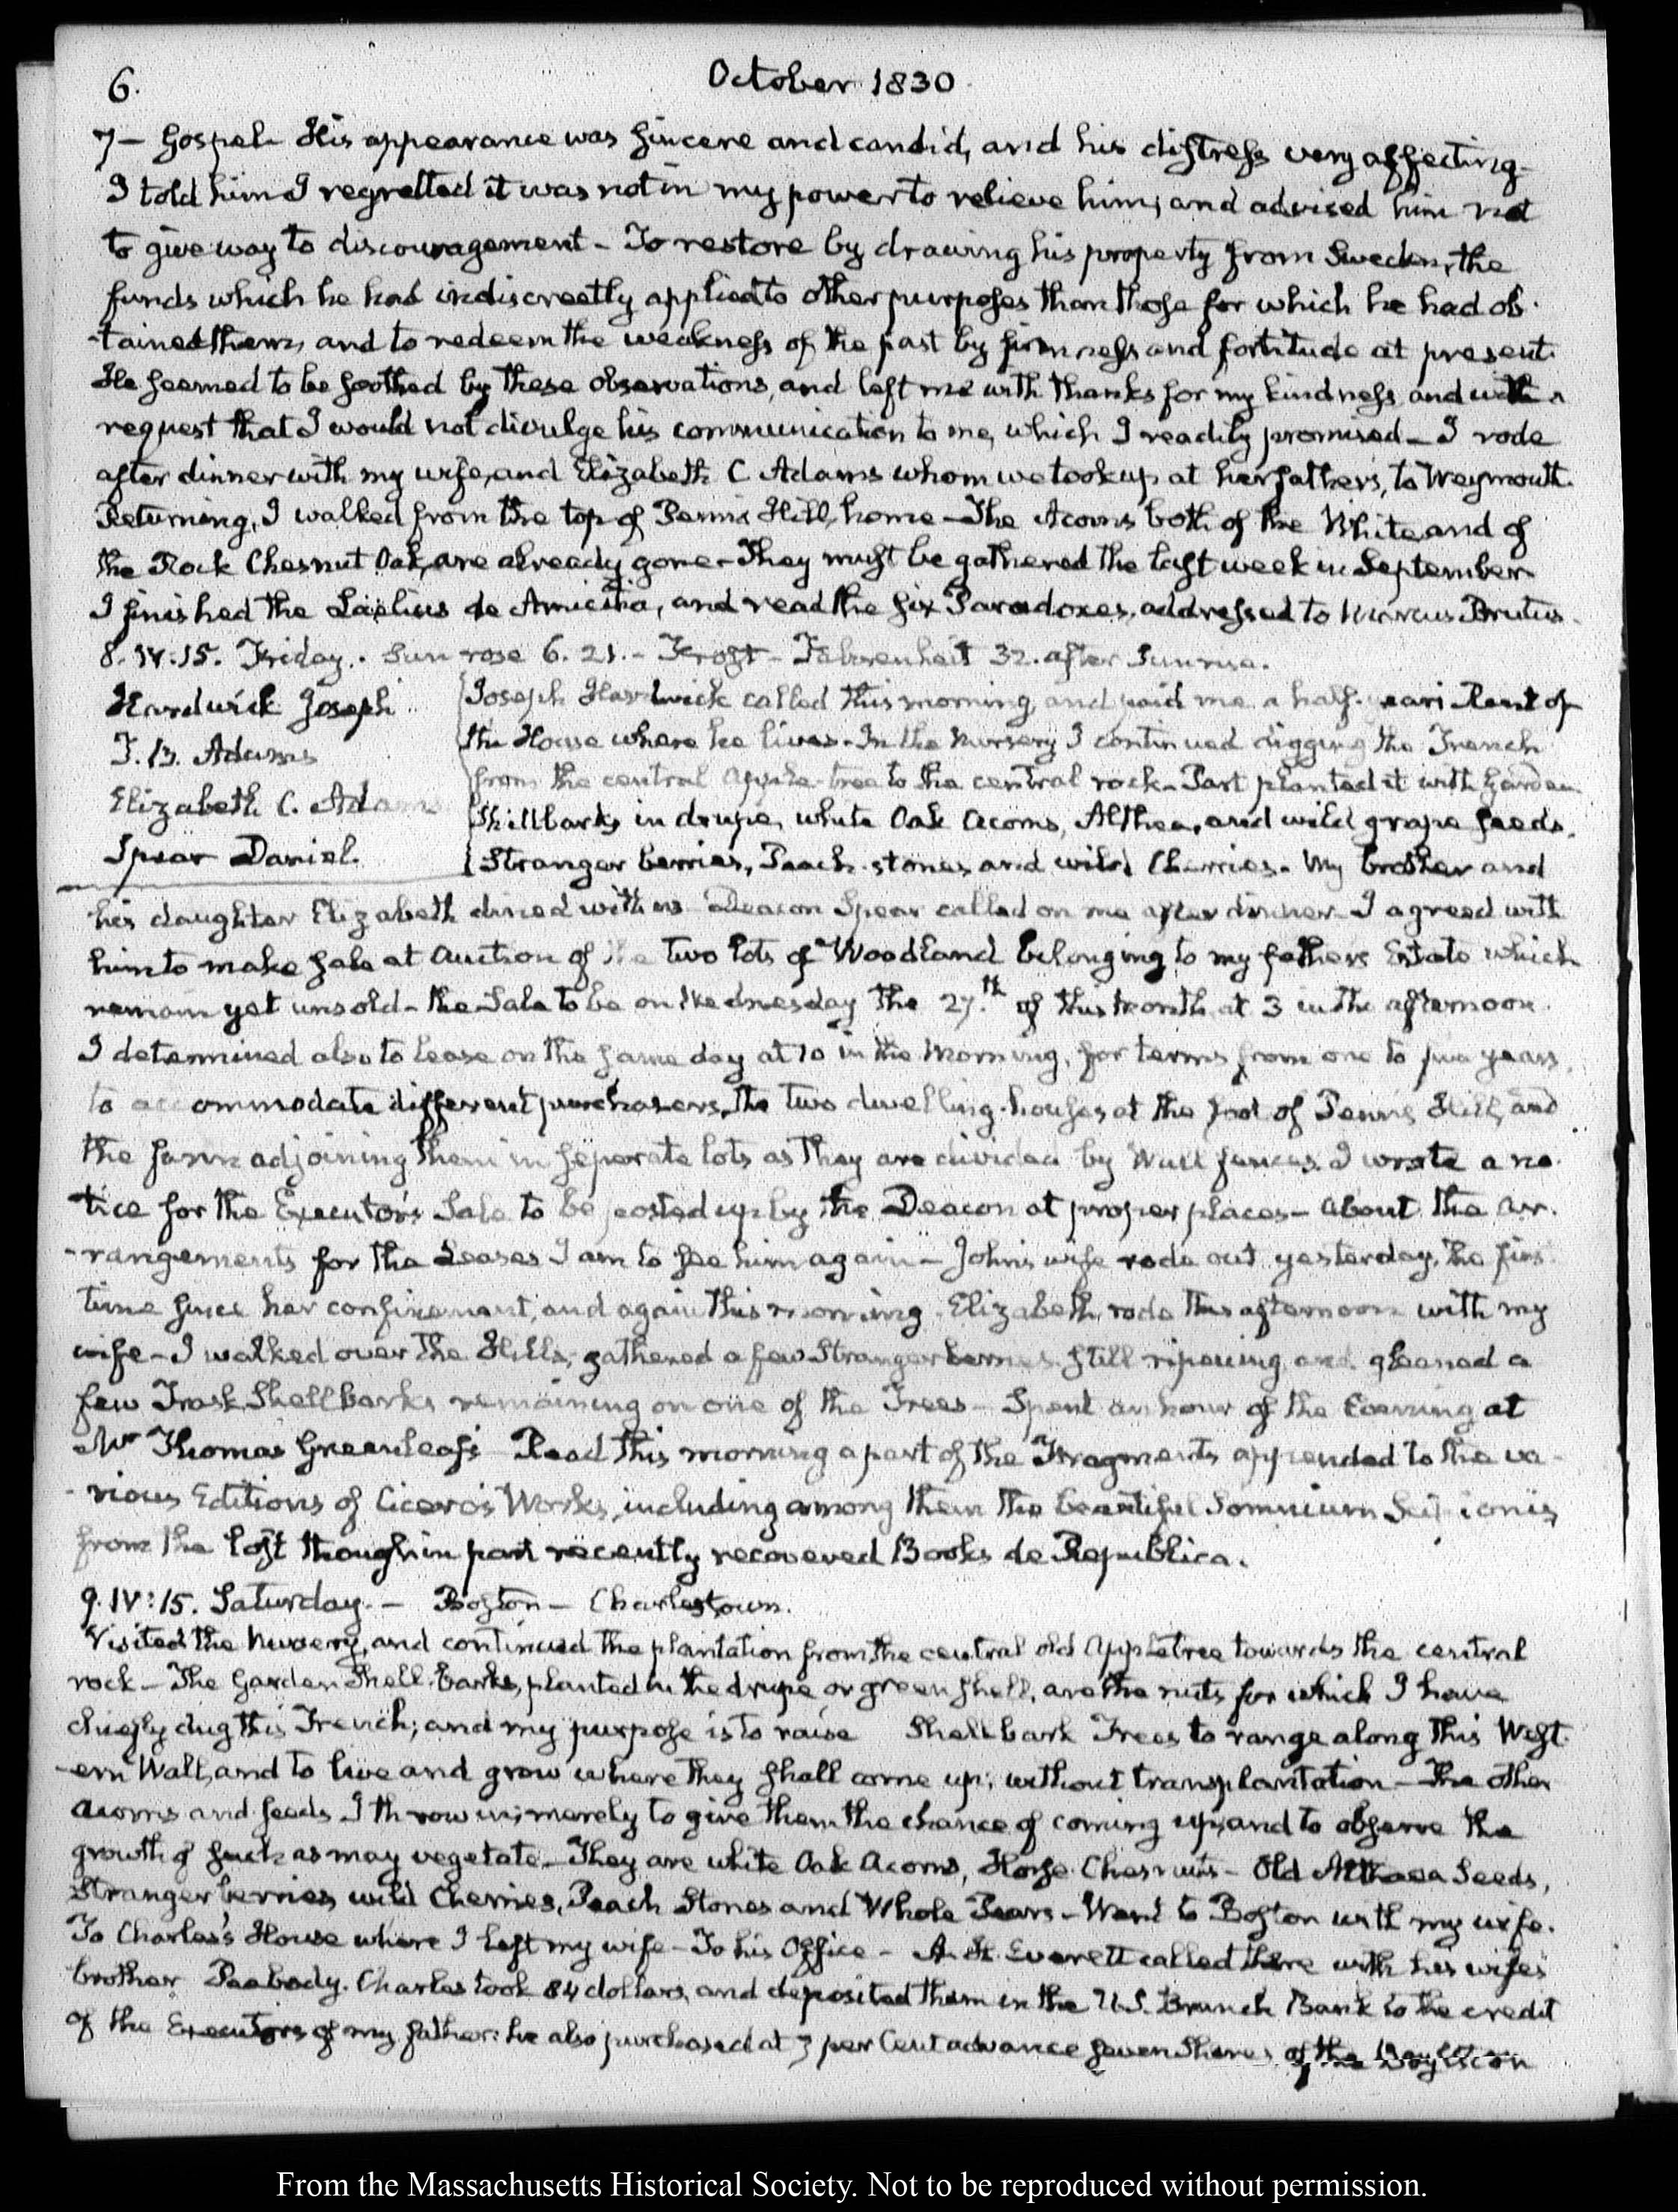 6.
October 1830
7— Gospel. His appearance was sincere and candid, and his distress very affecting—
I told him I regretted it was not in my power to relieve him; and advised him not
to give way to discouragement — To restore by drawing his property from Sweden, the
funds which he had indiscreetly applied to other purposes than those for which he had ob-
-tained them, and to redeem the weakness of the past by firmness and fortitude at present.
He seemed to be soothed by these observations, and left me with thanks for my kindness and with a
request that I would not divulge his communication to me, which I readily promised — I rode
after dinner with my wife, and Elizabeth C Adams whom we took up at her father's, to Weymouth.
Returning, I walked from the top of Penn's Hill, home — The Acorns both of the White and of
the Rock Chesnut Oak, are already gone — They must be gathered the last week in September
I finished the Laelius de Amicitia, and read the six Paradoxes, addressed to Marcus Brutus.
8. IV:15. Friday. Sun rose 6. 21. — Frost — Fahrenheit 32. after Sunrise.
Hardwick Joseph
T. B. Adams
Elizabeth C. Adams
Spear Daniel.
Joseph Hardwick called this morning, and paid me a half-years Rent of
the House where he lives. In the Nursery I continued digging the Trench
from the central apple-tree to the central rock — Part planted it with Garden
Shellbarks in drupe, white Oak Acorns, Althea, and wild grape seeds.
Stranger berries, Peach stones and wild Cherries. My brother and
his daughter Elizabeth dined with us. Deacon Spear called on me after dinner. I agreed with
him to make sale at Auction of the two lots of Woodland belonging to my father's Estate which
remain yet unsold — the Sale to be on Wednesday the 27.th of this month at 3 in the afternoon.
I determined also to lease on the same day at 10 in the morning, for terms from one to five years,
to accommodate different purchasers, the two dwelling-houses at the foot of Penn's Hill, and
the farm adjoining them in seperate lots as they are divided by Wall fences. I wrote a no-
tice for the Executor's Sale to be posted up by the Deacon at proper places — about the ar-
-rangements for the Leases I am to see him again — John's wife rode out yesterday, the first
time since her confinement, and again this morning. Elizabeth rode this afternoon with my
wife — I walked over the Hills, gathered a few Stranger berries still ripening, and gleaned a
few Trask Shellbarks remaining on one of the Trees — Spent an hour of the Evening at
Mr Thomas Greenleaf's. Read this morning a part of the Fragments appended to the va-
-rious Editions of Cicero's Works, including among them the beautiful Somnium Scipionis,
from the lost though in part recently recovered Books de Republica.
9. IV:15. Saturday. — Boston — Charlestown.
Visited the Nursery, and continued the plantation from the central old Appletree towards the central
rock — The Garden Shell-barks, planted in the drupe or green shell, are the nuts for which I have
chiefly dug this Trench; and my purpose is to raise Shellbark Trees to range along this West-
-ern Wall, and to live and grow where they shall come up, without transplantation — The other
acorns and seeds I throw in, merely to give them the chance of coming up, and to observe the
growth of such as may vegetate — They are white Oak Acorns, Horse Chesnuts — Old Althaea Seeds,
Stranger berries, wild Cherries, Peach Stones and Whole Pears — Went to Boston with my wife.
To Charles's House where I left my wife — To his Office — A. H. Everett called there with his wife's
brother Peabody. Charles took 84 dollars, and deposited them in the U.S. Branch Bank to the credit
of the Executors of my father: he also purchased at 3 per Cent advance seven Shares of the Boylston
From the Massachusetts Historical Society. Not to be reproduced without permission.